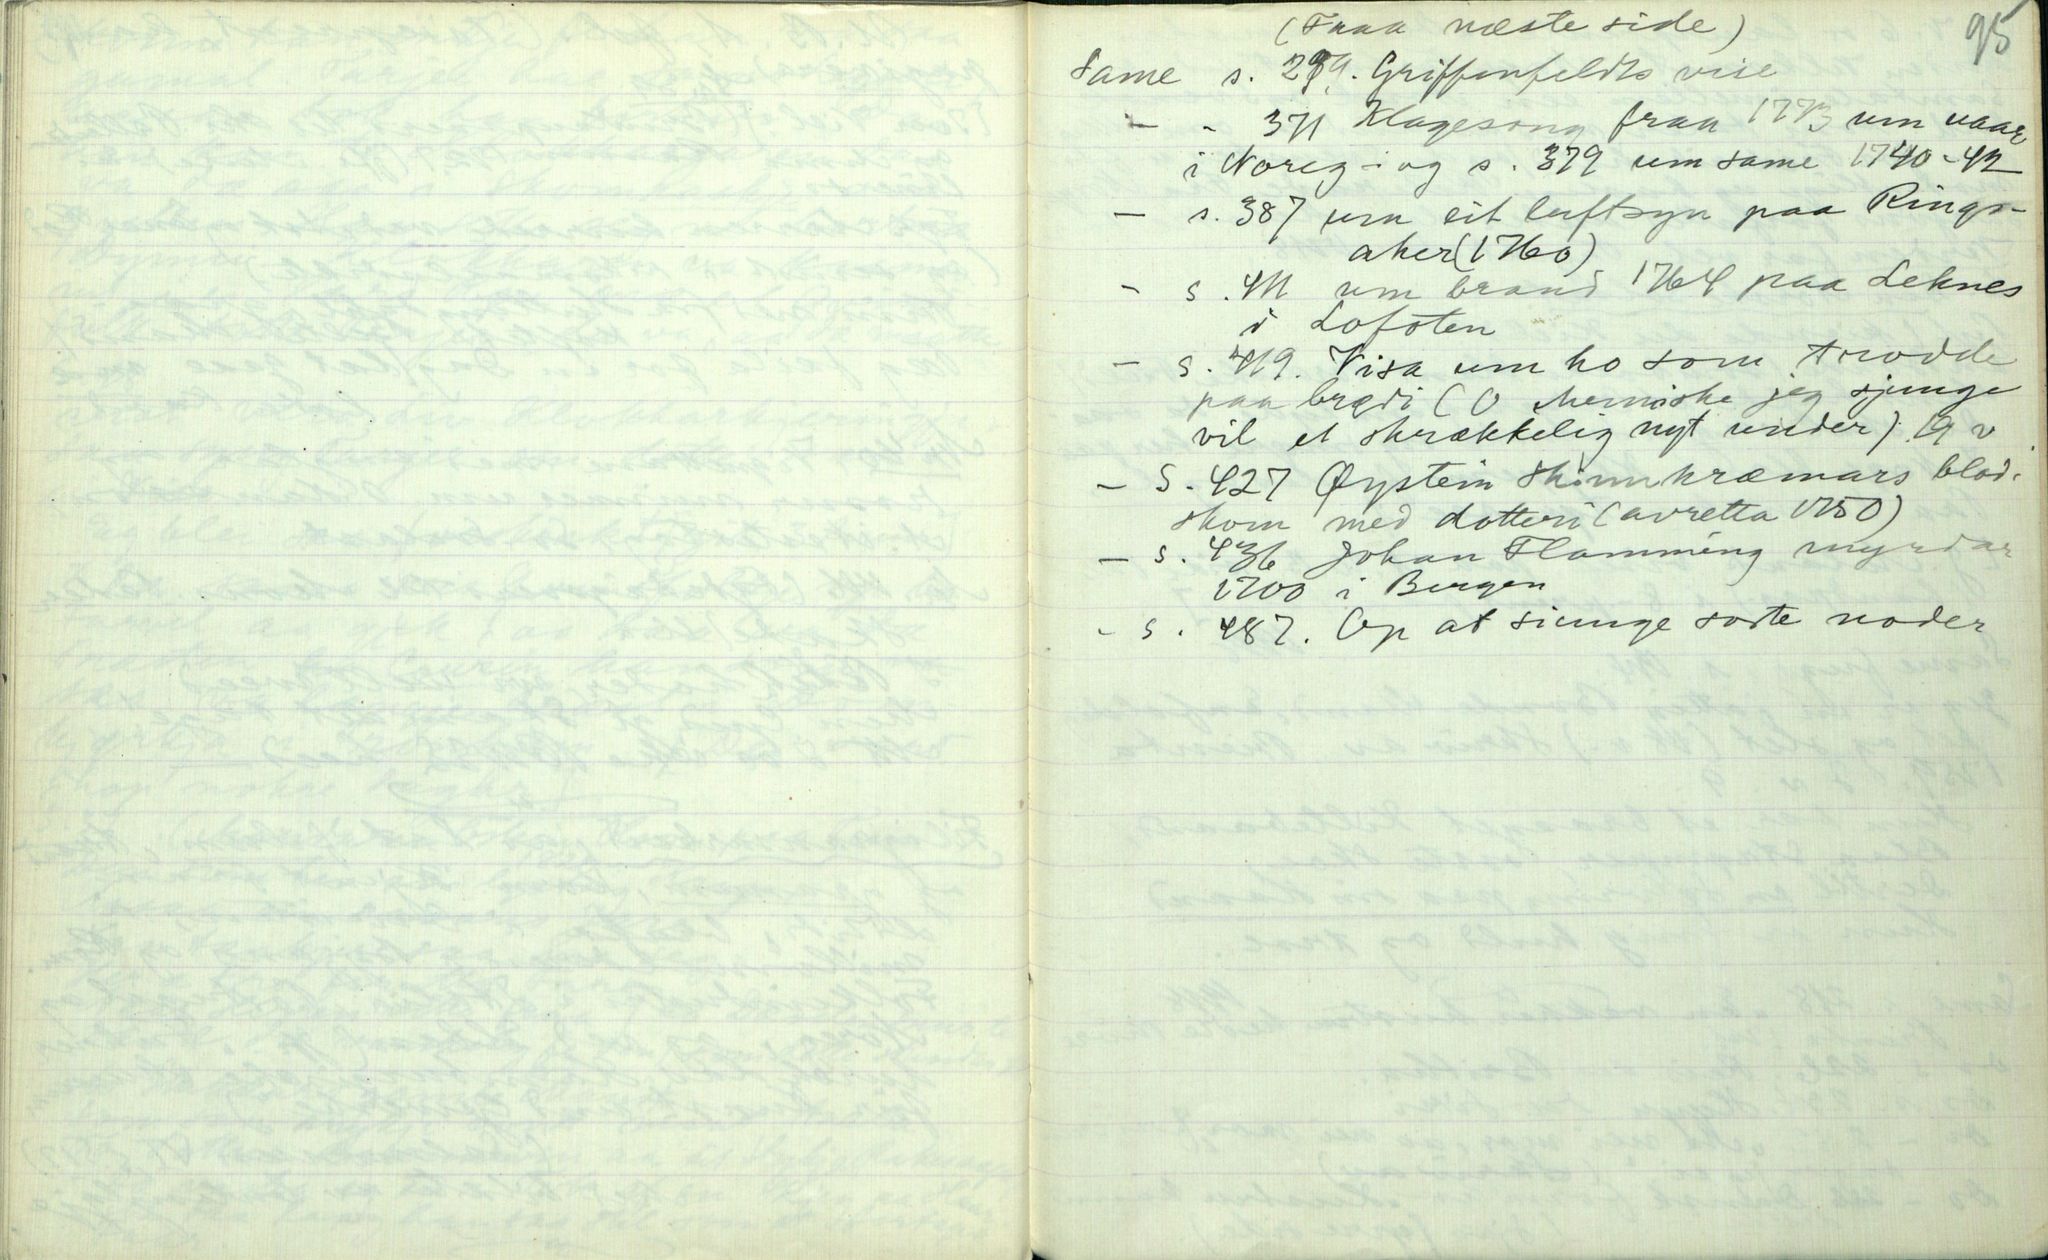 95
(Fraa næste side)
Same s. 299. Griffenfeldts vise
— - 371 Klagesong fraa 1773 um uaar
i Noreg - og s. 379 um same 1740-42
— s. 387 um eit luftsyn paa Rings-
aker (1760)
— s. 411 um brand 1764 paa Leknes
i Lofoten
— s. 419. Visa um ho som trodde
paa brødi (O Menniske jeg sjunge
vil et skrækkelig nyt under) 19 v.
— S. 427 Øystein Skinnkræmars blod-
skom med dotteri (avretta 1750)
— s. 436 Johan Flamming myrdar
1700 i Bergen
- s. 487. Op at siunge sorte noder